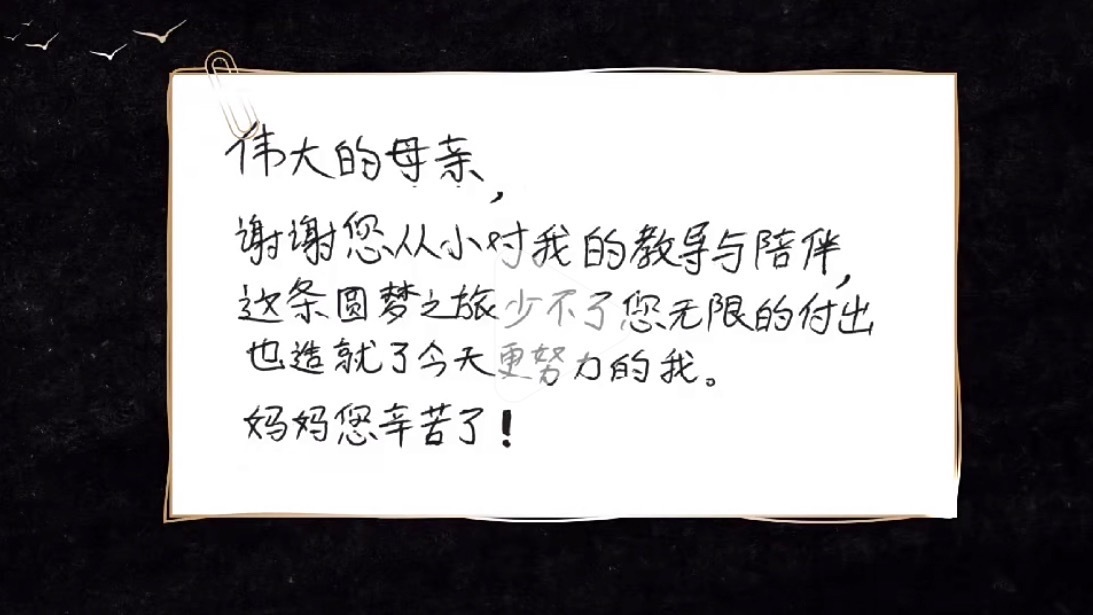 伟大的母亲,
谢谢您从小对我的教导与陪伴,
这条圆梦之旅少不了您无限的付出
也造就了今天更努力的我。
妈妈您辛苦了!